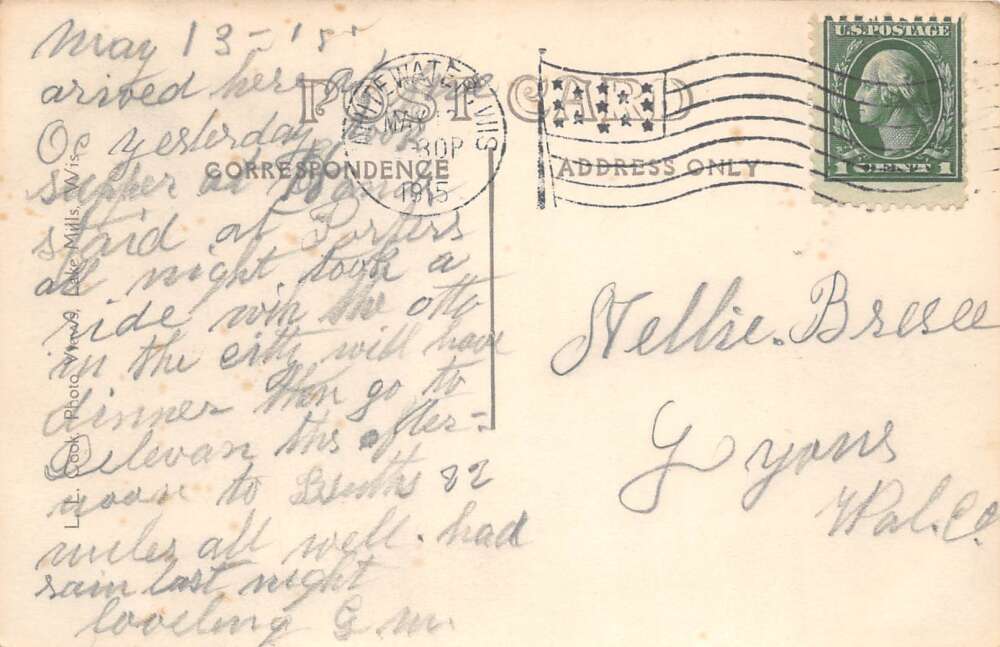 May 13 - '15
arived here at five
Oc yesterday
supper at
staid at Porters
all night took a
ride win the otto
in the city will have
dinner then go to
Delevan this after=
noon to 82
miles all well. had
rain last night
loveling G. M.
POST CARD
CORRESPONDENCE
ADDRESS ONLY
WHITEWATER, WIS
MAY
30P
1915
U.S. POSTAGE
1 CENT 1
Nellie. Breece
Lyons
Wal. Co.
L. L. Cook, Photo Views, Lake Mills, Wis.